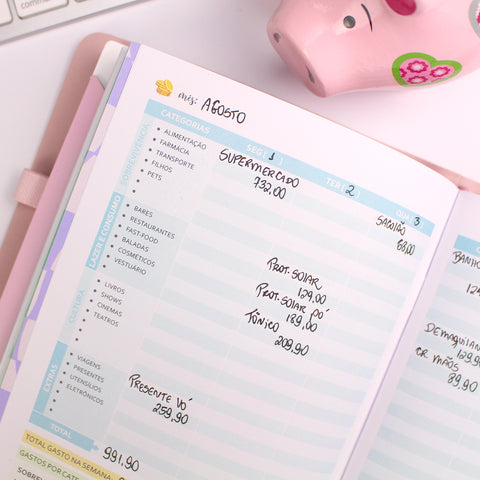 mês: AGOSTO
CATEGORIAS
SEG( 1 )
TER( 2 )
QUA( 3
SOBREVIVÊNCIA
• ALIMENTAÇÃO
• FARMÁCIA
• TRANSPORTE
• FILHOS
• PETS
SUPERMERCADO
732,00
LAZER E CONSUMO
• BARES
• RESTAURANTES
• FAST-FOOD
• BALADAS
• COSMÉTICOS
• VESTUÁRIO
PROT. SOLAR
129,00
PROT. SOLAR PÓ
189,00
TÔNICO
209,90
CULTURA
• LIVROS
• SHOWS
• CINEMAS
• TEATROS
EXTRAS
• VIAGENS
• PRESENTES
• UTENSÍLIOS
• ELETRÔNICOS
PRESENTE VÓ
259,90
TOTAL
991,90
TOTAL GASTO NA SEMANA:
GASTOS POR CATE
SOBRE
BANHO
DEMAQUILAN
129,90
CR MÃOS
89,90